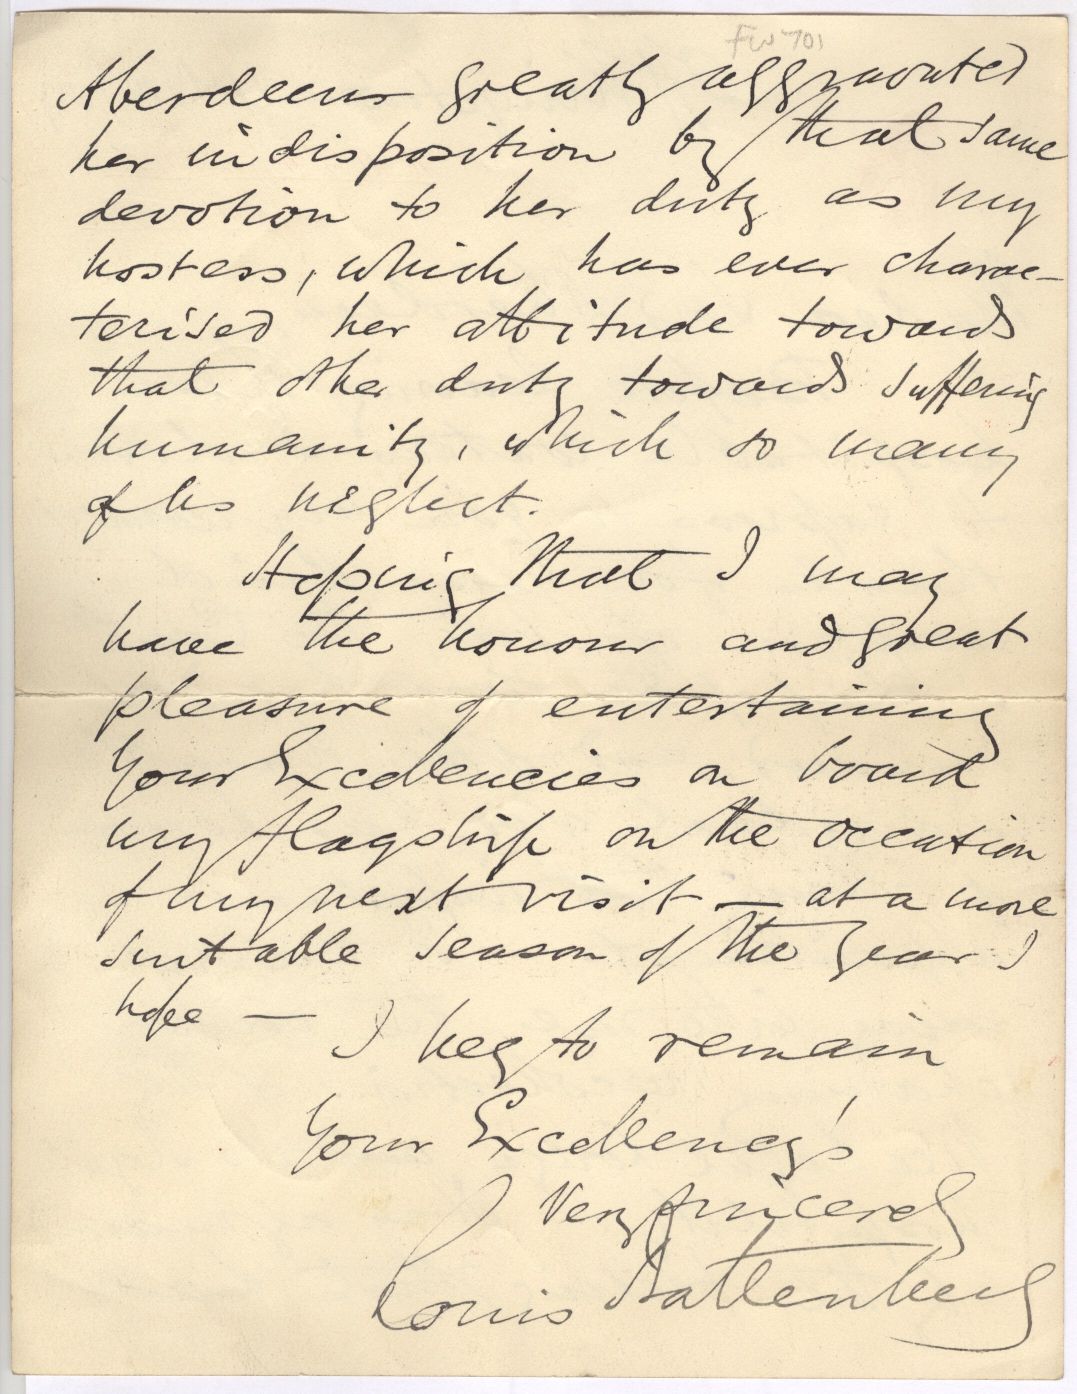 FW 701
Aberdeen greatly aggravated
her indisposition by that same
devotion to her duty as my
hostess, which has ever charac-
terised her attitude towards
that other duty towards suffering
humanity, which so many
of us neglect.
Hoping that I may
have the honour and great
pleasure of entertaining
Your Excellencies on board
my flagship on the occasion
of my next visit — at a more
suitable season of the year I
hope —
I beg to remain
Your Excellency's
Very sincerely
Louis Battenberg